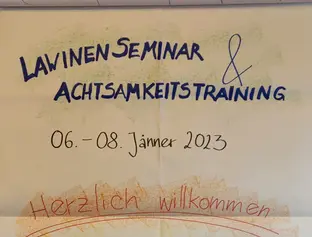 LAWINENSEMINAR &
ACHTSAMKEITSTRAINING
06.-08. Jänner 2023
Herzlich willkommen